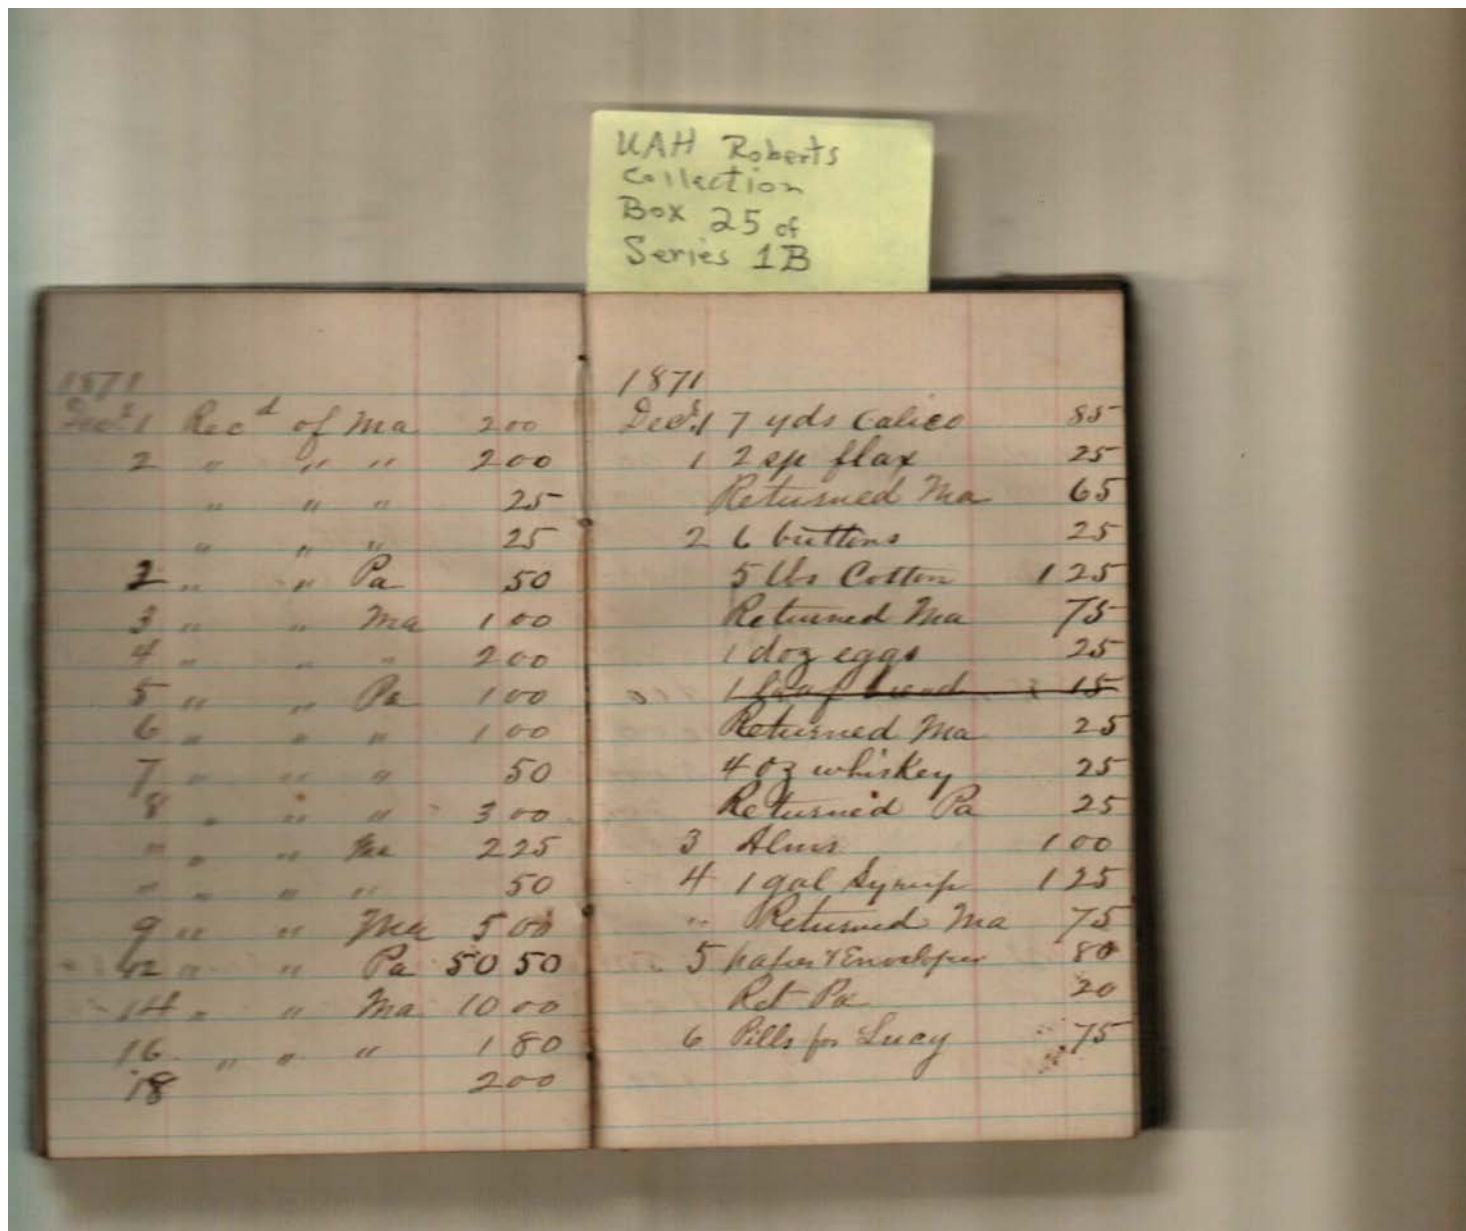 UAH Roberts
Collection
Box 25 of
Series 1B
1871
Decr 1 Recd of Ma 2 00
2 " " " 2 00
" " " 25
" " " 25
2 " " Pa 50
3 " " Ma 1 00
4 " " " 2 00
5 " " Pa 1 00
6 " " " 1 00
7 " " " 50
8 " " " 3 00
" " " Ma 2 25
" " " " 50
9 " " Ma 5 00
12 " " Pa 50 50
14 " " Ma 10 00
16 " " " 1 80
18 2 00
1871
Decr 1 7 yds Calico 85
1 2 sp flax 25
Returned Ma 65
2 6 buttons 25
5 lbs Cotton 1 25
Returned Ma 75
1 doz eggs 25
1 loaf bread 15
Returned Ma 25
4 oz whiskey 25
Returned Pa 25
3 Alms 1 00
4 1 gal Syrup 1 25
" Returned Ma 75
5 paper & Envelopes 80
Ret Pa 20
6 Pills for Lucy 75